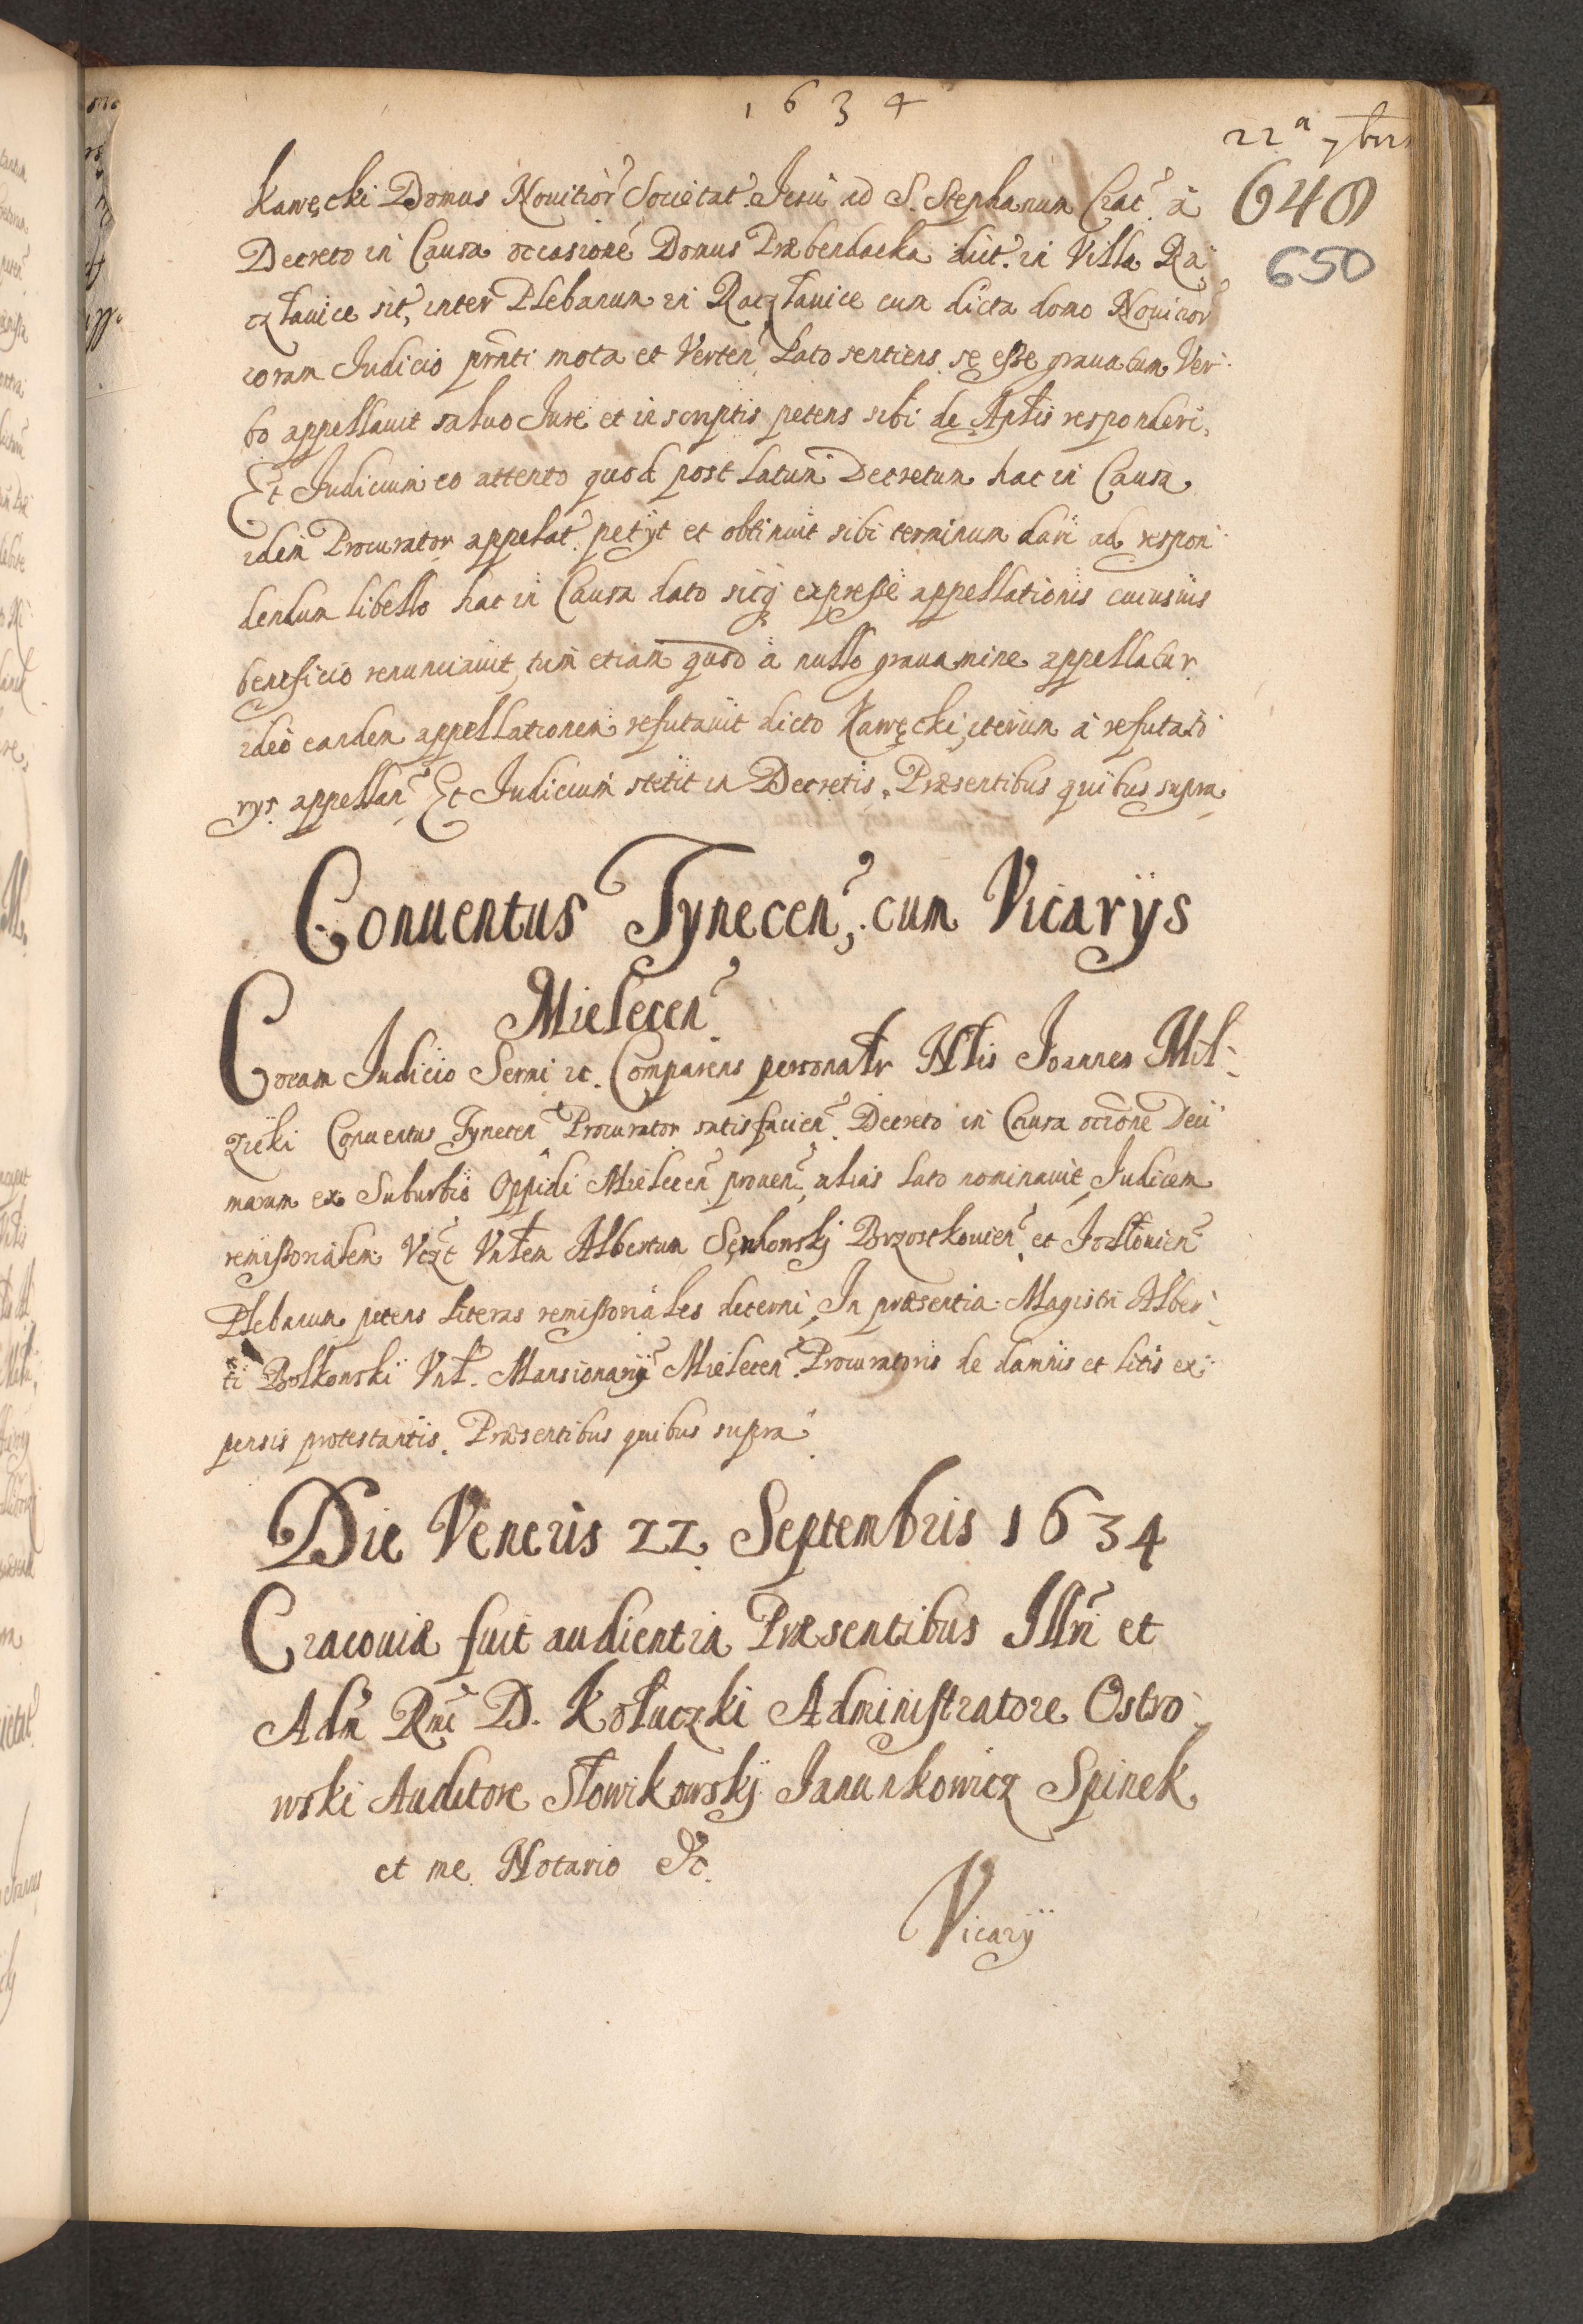 1634
22ª 7bris
640
650
Kawęcki Domus Nouitior Societat. Jesu ad S. Stephanum Crac. à
Decreto in Causa occasione Domus Præbendacka dict. in Villa Ra
czławice sit, inter Plebanum in Raczławice cum dicta domo Nouicior
coram Judicio prnti mota et Verten, Lato sentiens se esse grauatum Ver
bo appellauit saluo Jure et in scriptis petens sibi de Aplis responderi,
Et Judicium eo attento quod post Latum Decretum hac in Causa
idem Procurator appelat. petyt et obtinuit sibi terminum dari ad respon
dendum libello hac in Causa dato sicq expresse appellationis cuiusuis
beneficio renunciauit, tum etiam quod à nullo grauamine appellatur
ideo eandem appellationem refutauit dicto Kawęcki, iterum à refutato
rys appellan, Et Judicium stetit in Decretis. Præsentibus quibus supra
Conuentus Tynecen, cum Vicarijs
Mielecen
Coram Judicio Sermi etc. Comparens personalr Nblis Joannes Mil-
zieki Conuentus Tynecen Procurator satisfacien Decreto in Causa occione Deci
marum ex Suburbio Oppidi Mielecen prouen, alias Lato nominauit Judicem
remissorialem Vczt Vnlem Albertum Sękowskj Brzostkouien et
Plebanum petens literas remissoriales decerni, In præsentia Magistri Alber
ti Bolkowski Vnl. Mansionarij Mielecen Procuratoris de damnis et litis ex
pensis protestantis. Præsentibus quibus supra
Die Veneris 22 Septembris 1634
Cracouiæ fuit audientia Præsentibus Illri et
Adm Rndi D. Kołuczki Administratore Ostro
wski Auditore Słowikowskj Janunkowicz Spinek
et me Notario &c.
Vicarij